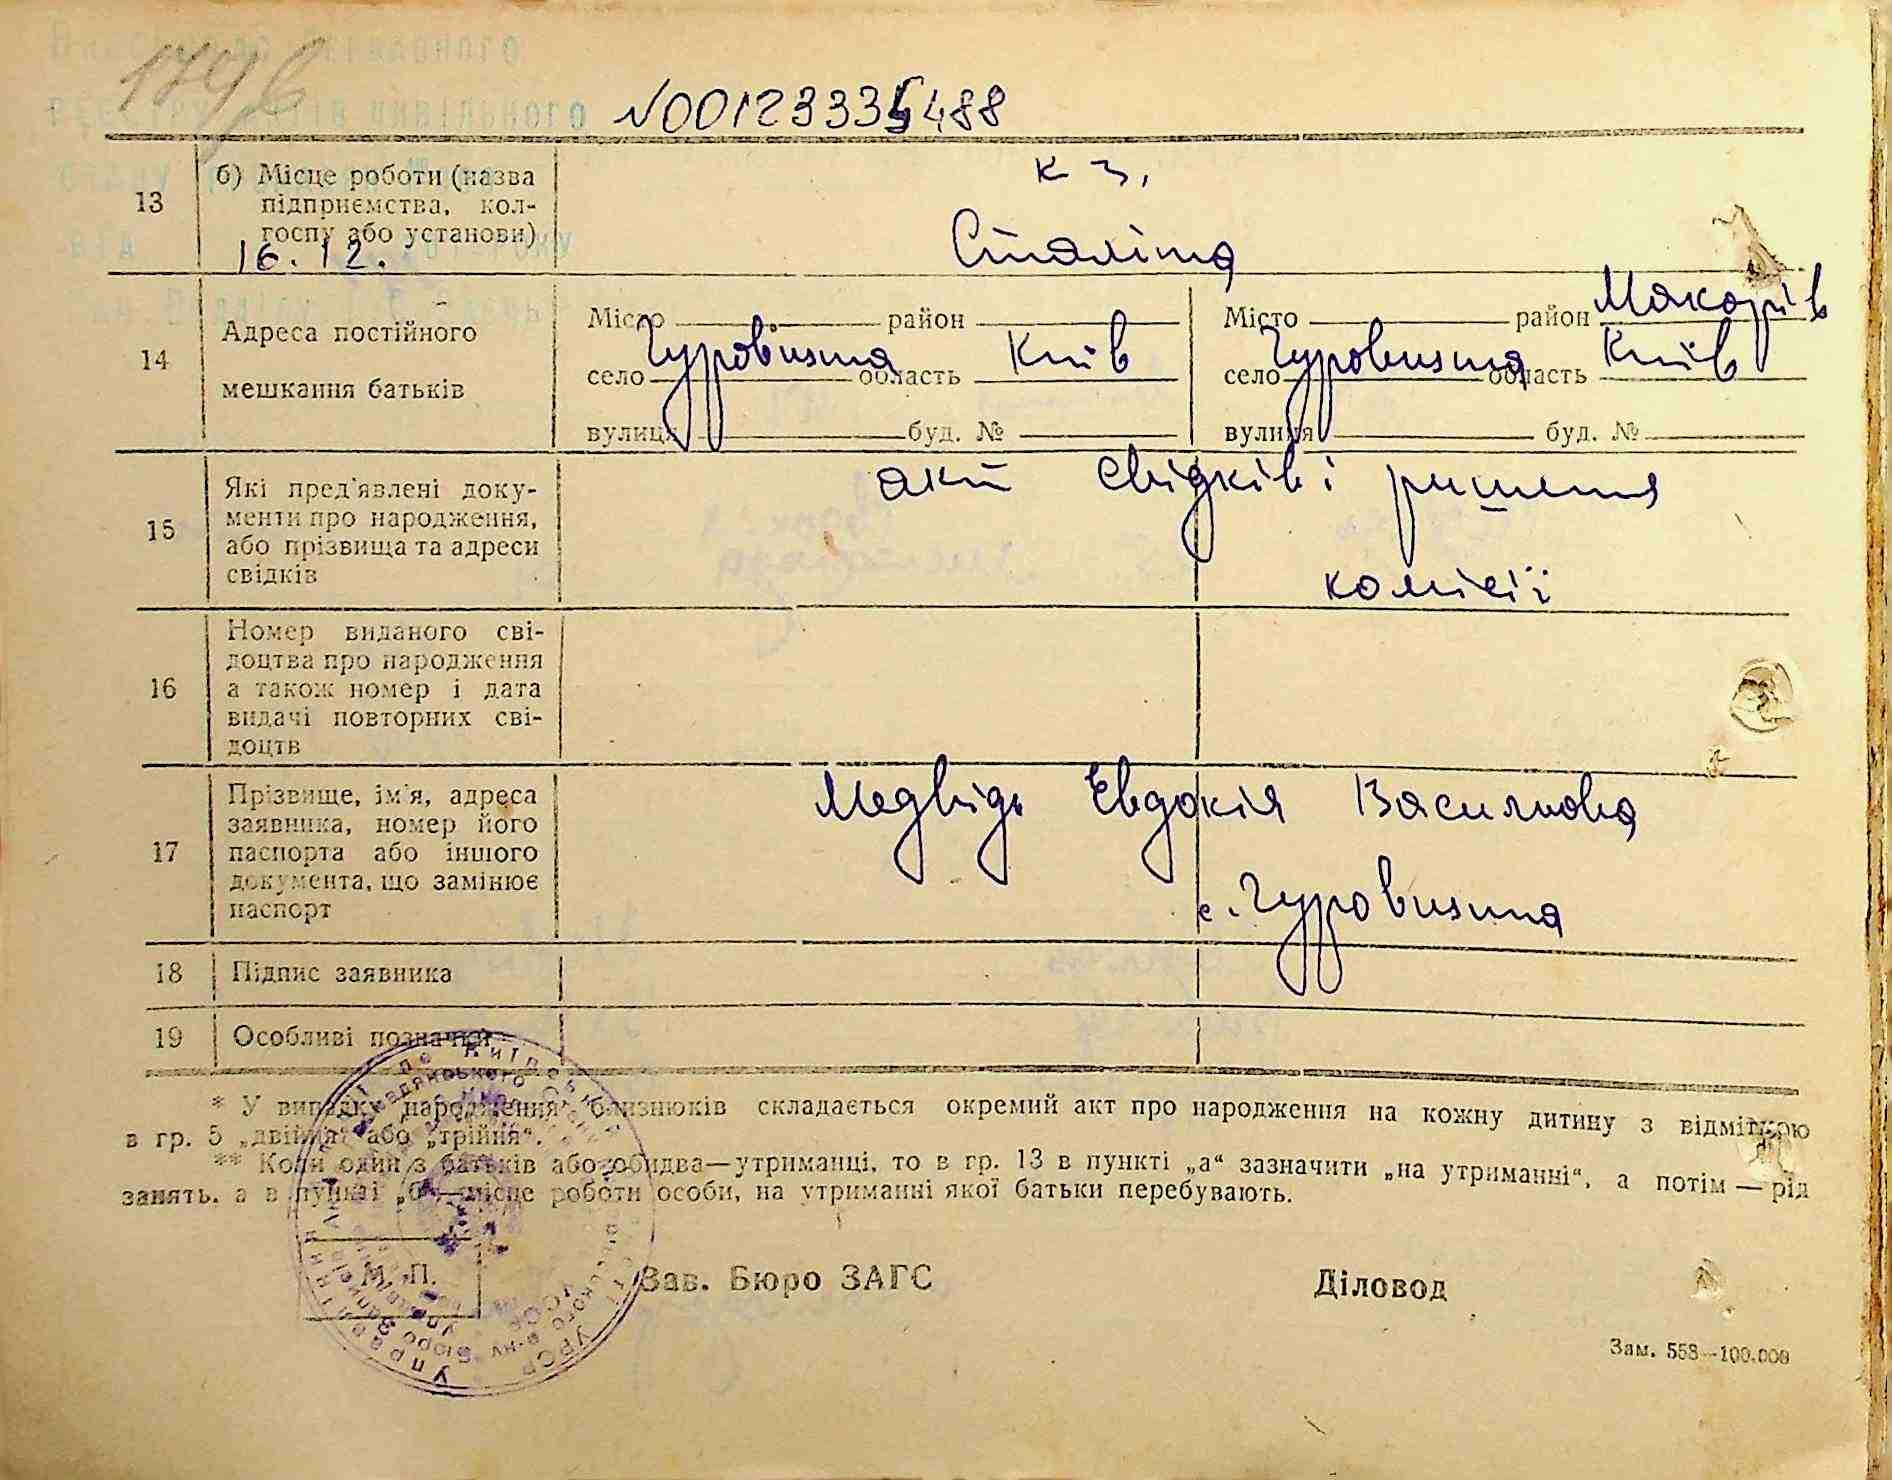 1796
№00123335488
13
б) Місце роботи (назва
підприємства, кол-
госпу або установи)
16.12.
к з,
Сталіна
14
Адреса постійного
мешкання батьків
Місто район
село Гуровизна область Київ
вулиця буд. №
Місто район Макорів
село Гуровизна область Київ
вулиця буд. №
15
Які пред'явлені доку-
менти про народження,
або прізвища та адреси
свідків
акт свідків і ришення
комісії
16
Номер виданого сві-
доцтва про народження
а також номер і дата
видачі повторних сві-
доцтв
17
Прізвище, ім'я, адреса
заявника, номер його
паспорта або іншого
документа, що замінює
паспорт
Медвідь Евдокія Васильовна
с. Гуровизна
18
Підпис заявника
19
Особливі позначки
* У випадку народження близнюків складається окремий акт про народження на кожну дитину з відміткою
в гр. 5 „двійня“ або „трійня“.
** Коли один з батьків або обидва—утриманці, то в гр. 13 в пункті „а“ зазначити „на утриманні“, а потім — рід
занять, а в пункті „б“—місце роботи особи, на утриманні якої батьки перебувають.
М. П.
Зав. Бюро ЗАГС
Діловод
Зам. 558—100.000